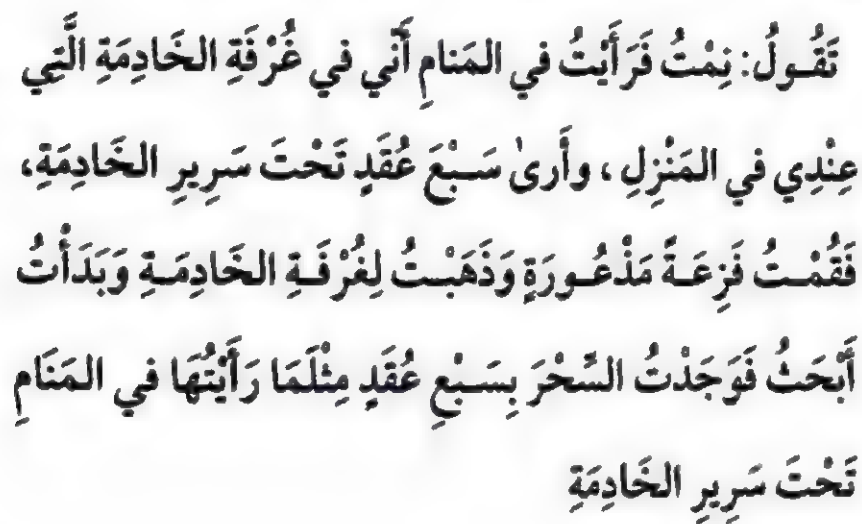 تَقُولُ: نِمْتُ فَرَأَيْتُ في المَنامِ أَنّي في غُرْفَةِ الخَادِمَةِ الَّتِي
عِنْدِي في المَنْزِلِ، وأَرىٰ سَبْعَ عُقَدٍ تَحْتَ سَرِيرِ الخَادِمَةِ،
فَقُمْتُ فَزِعَةً مَذْعُورَةٍ وَذَهَبْتُ لِغُرْفَةِ الخَادِمَةِ وَبَدَأْتُ
أَبْحَثُ فَوَجَدْتُ السِّحْرَ بِسَبْعِ عُقَدٍ مِثْلَمَا رَأَيْتُهَا في المَنَامِ
تَحْتَ سَرِيرِ الخَادِمَةِ